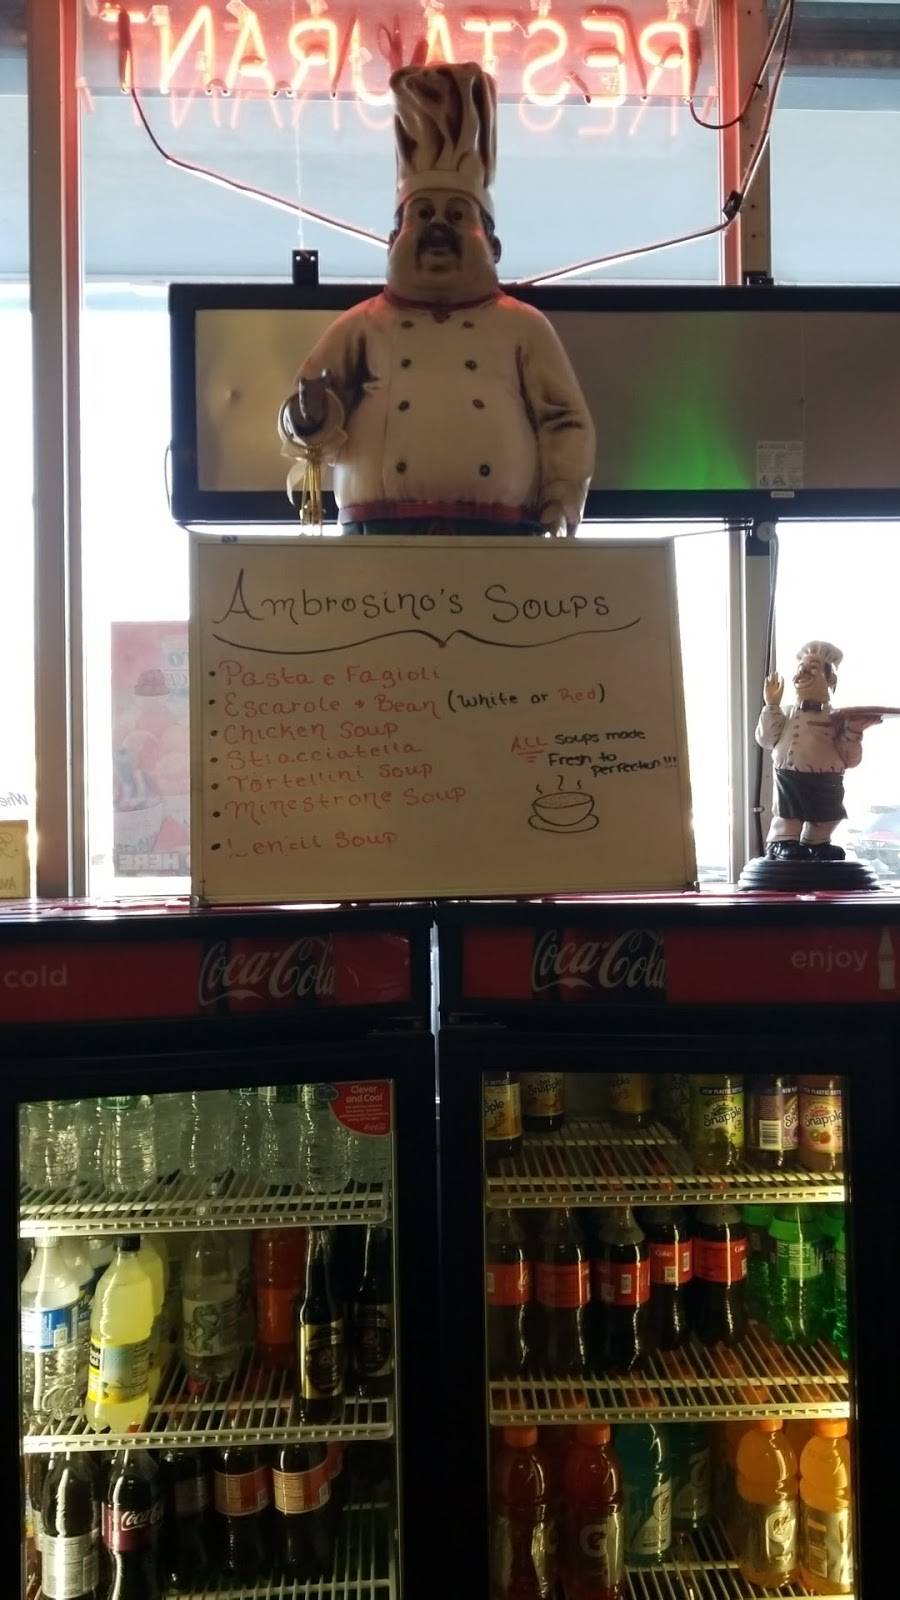 RESTAURANT
Ambrosino's Soups
• Pasta e Fagioli
• Escarole + Bean (White or Red)
• Chicken Soup
• Straciatella
• Tortellini Soup
• Minestrone Soup
• Lentil Soup
ALL Soups made
Fresh to
perfection!!!
cold
Coca-Cola
Coca-Cola
enjoy
Clever
and Cool
Snapple
Snapple
Coke
Coca-Cola
HERE